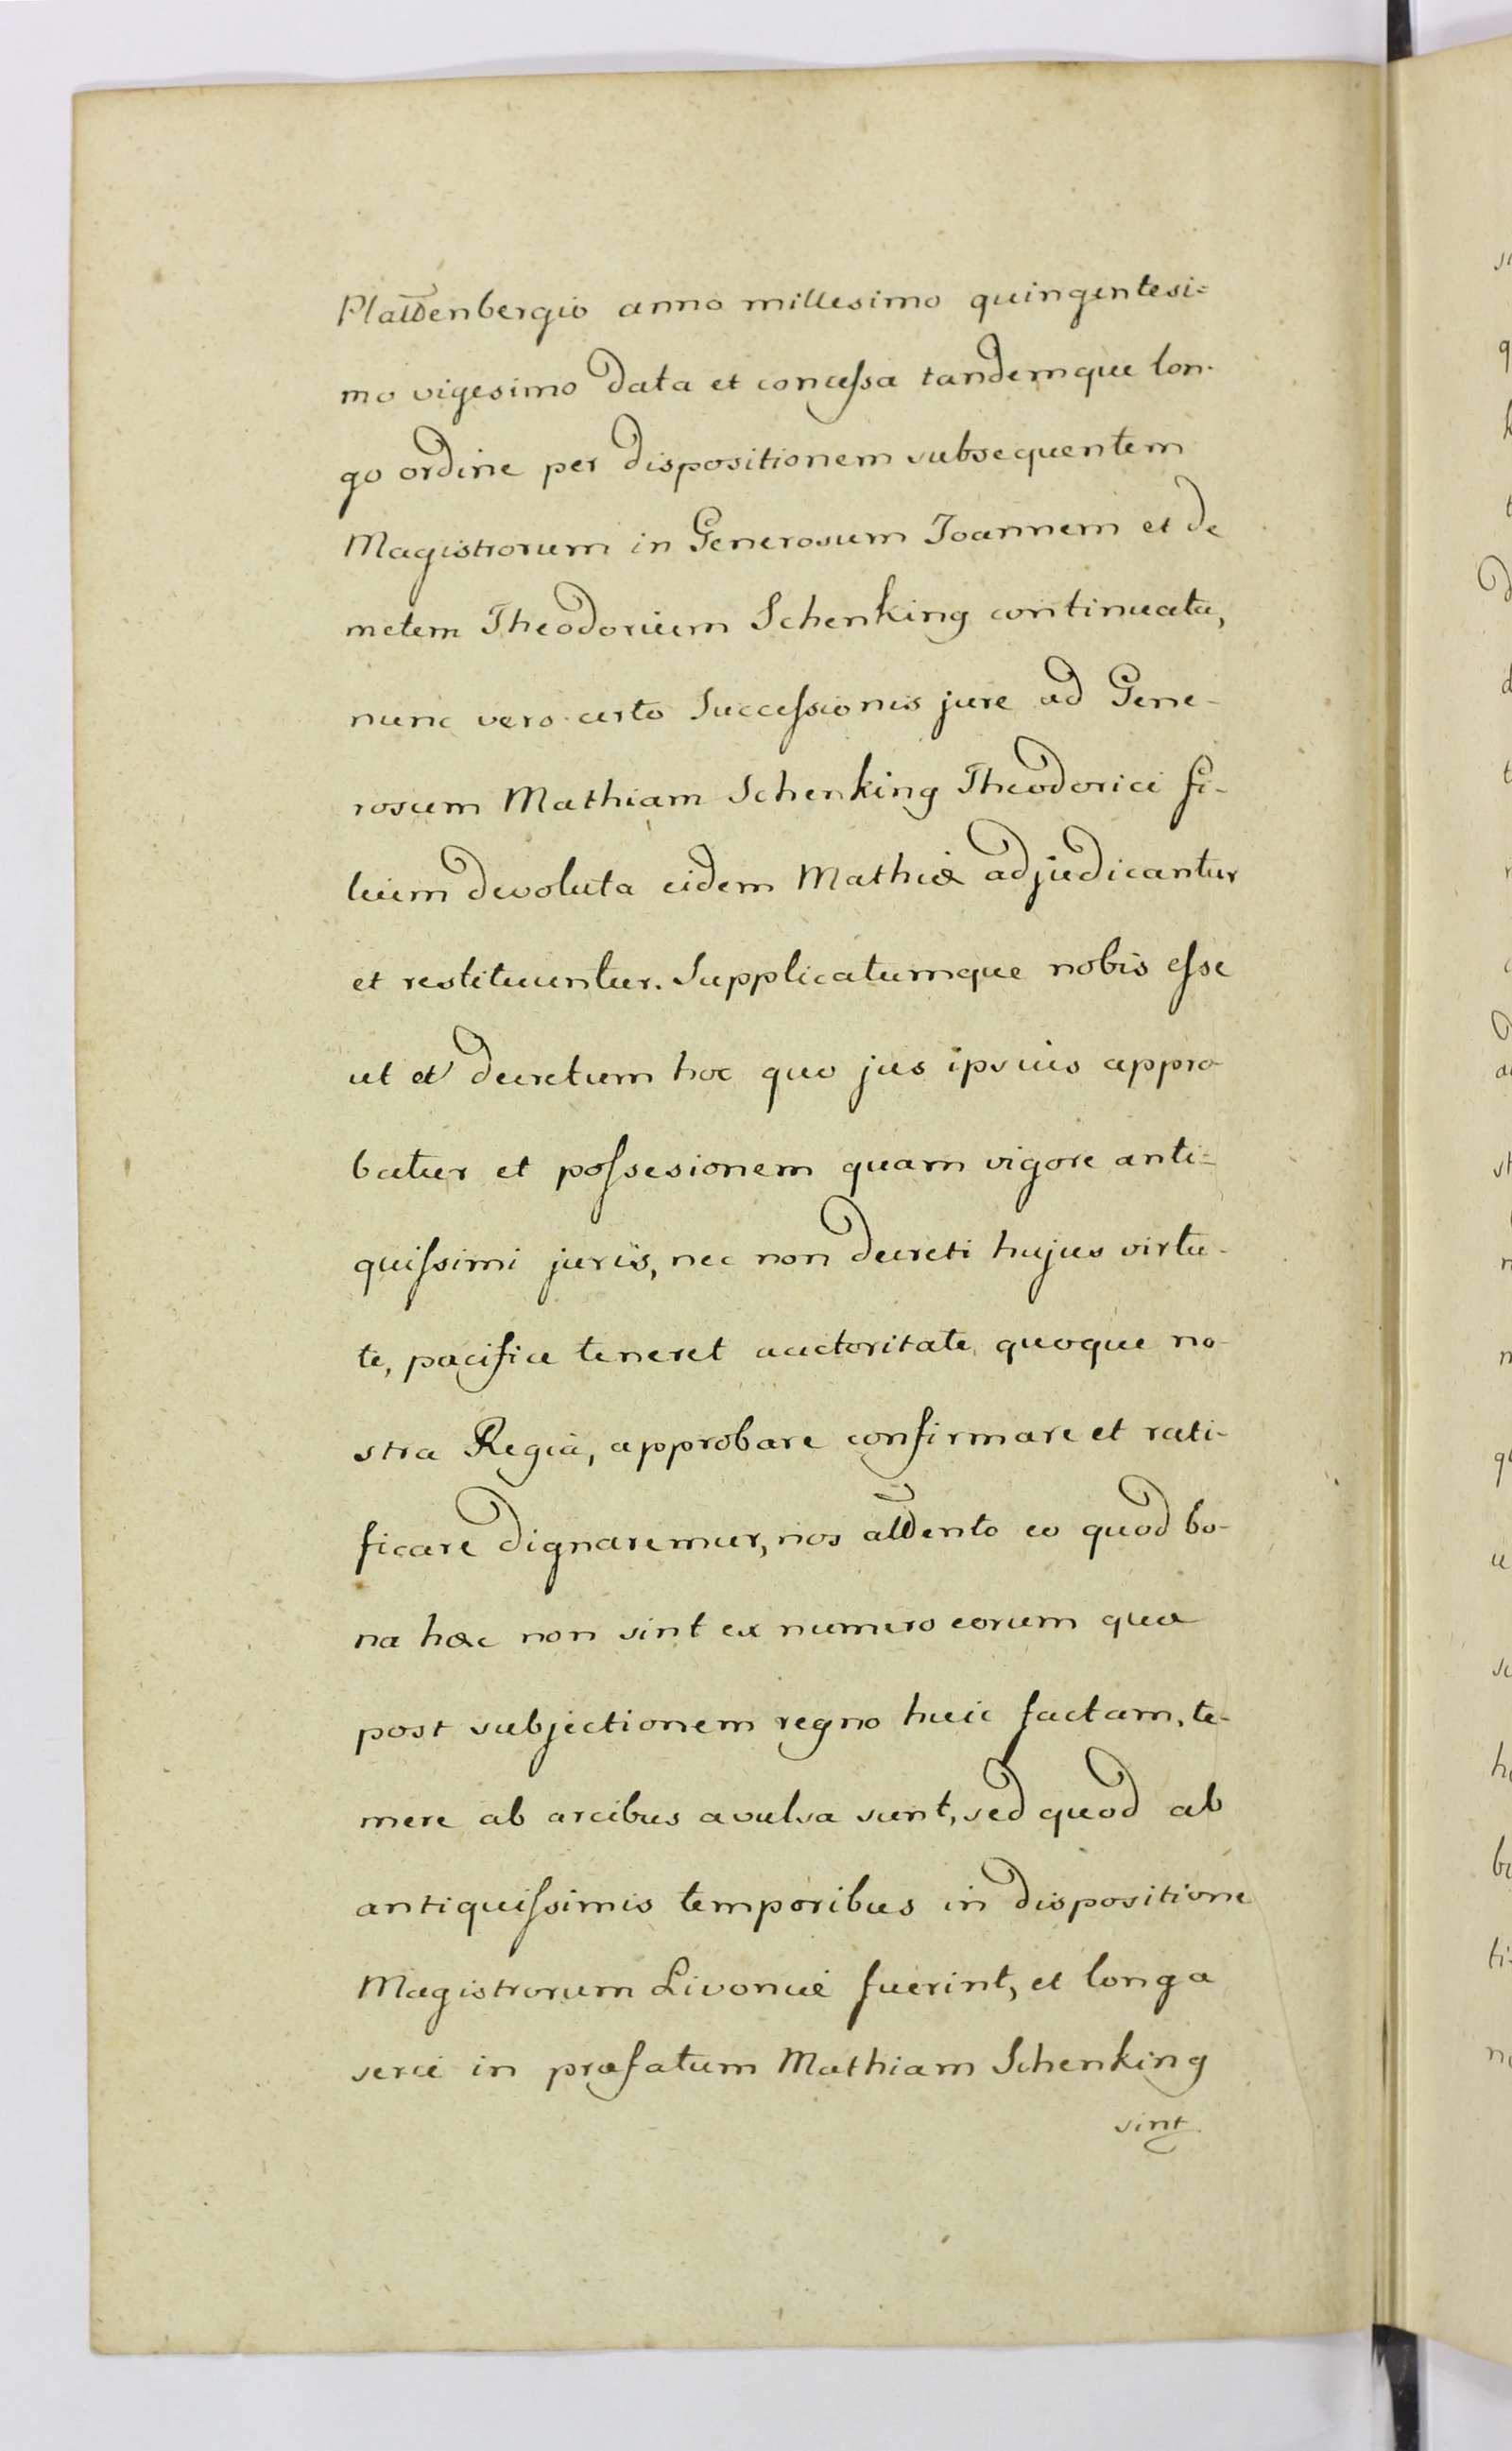 Plattenbergio anno millesimo quingentesi=
mo vigesimo data et concessa tandemque lon-
go ordine per dispositionem subsequentem
Magistrorum in Generosum Joannem et de
metem Theodoricum Schenking continuata,
nunc vero certo Successionis jure ad Gene-
rosum Mathiam Schenking Theodorici fi-
lium devoluta eidem Mathiæ adjudicantur
et restituuntur. Supplicatumque nobis esse
ut et decretum hoc quo jus ipsius appro-
batur et possesionem quam vigore anti=
quissimi juris, nec non decreti hujus virtu-
te, pacifice teneret auctoritate quoque no-
stra Regia, approbare confirmare et rati-
ficare dignaremur, nos attento eo quod bo-
na hæc non sint ex numero eorum quæ
post subjectionem regno huic factam, te-
mere ab arcibus avulsa sunt, sed quod ab
antiquissimis temporibus in dispositione
Magistrorum Livoniæ fuerint, et longa
serie in præfatum Mathiam Schenking
sint